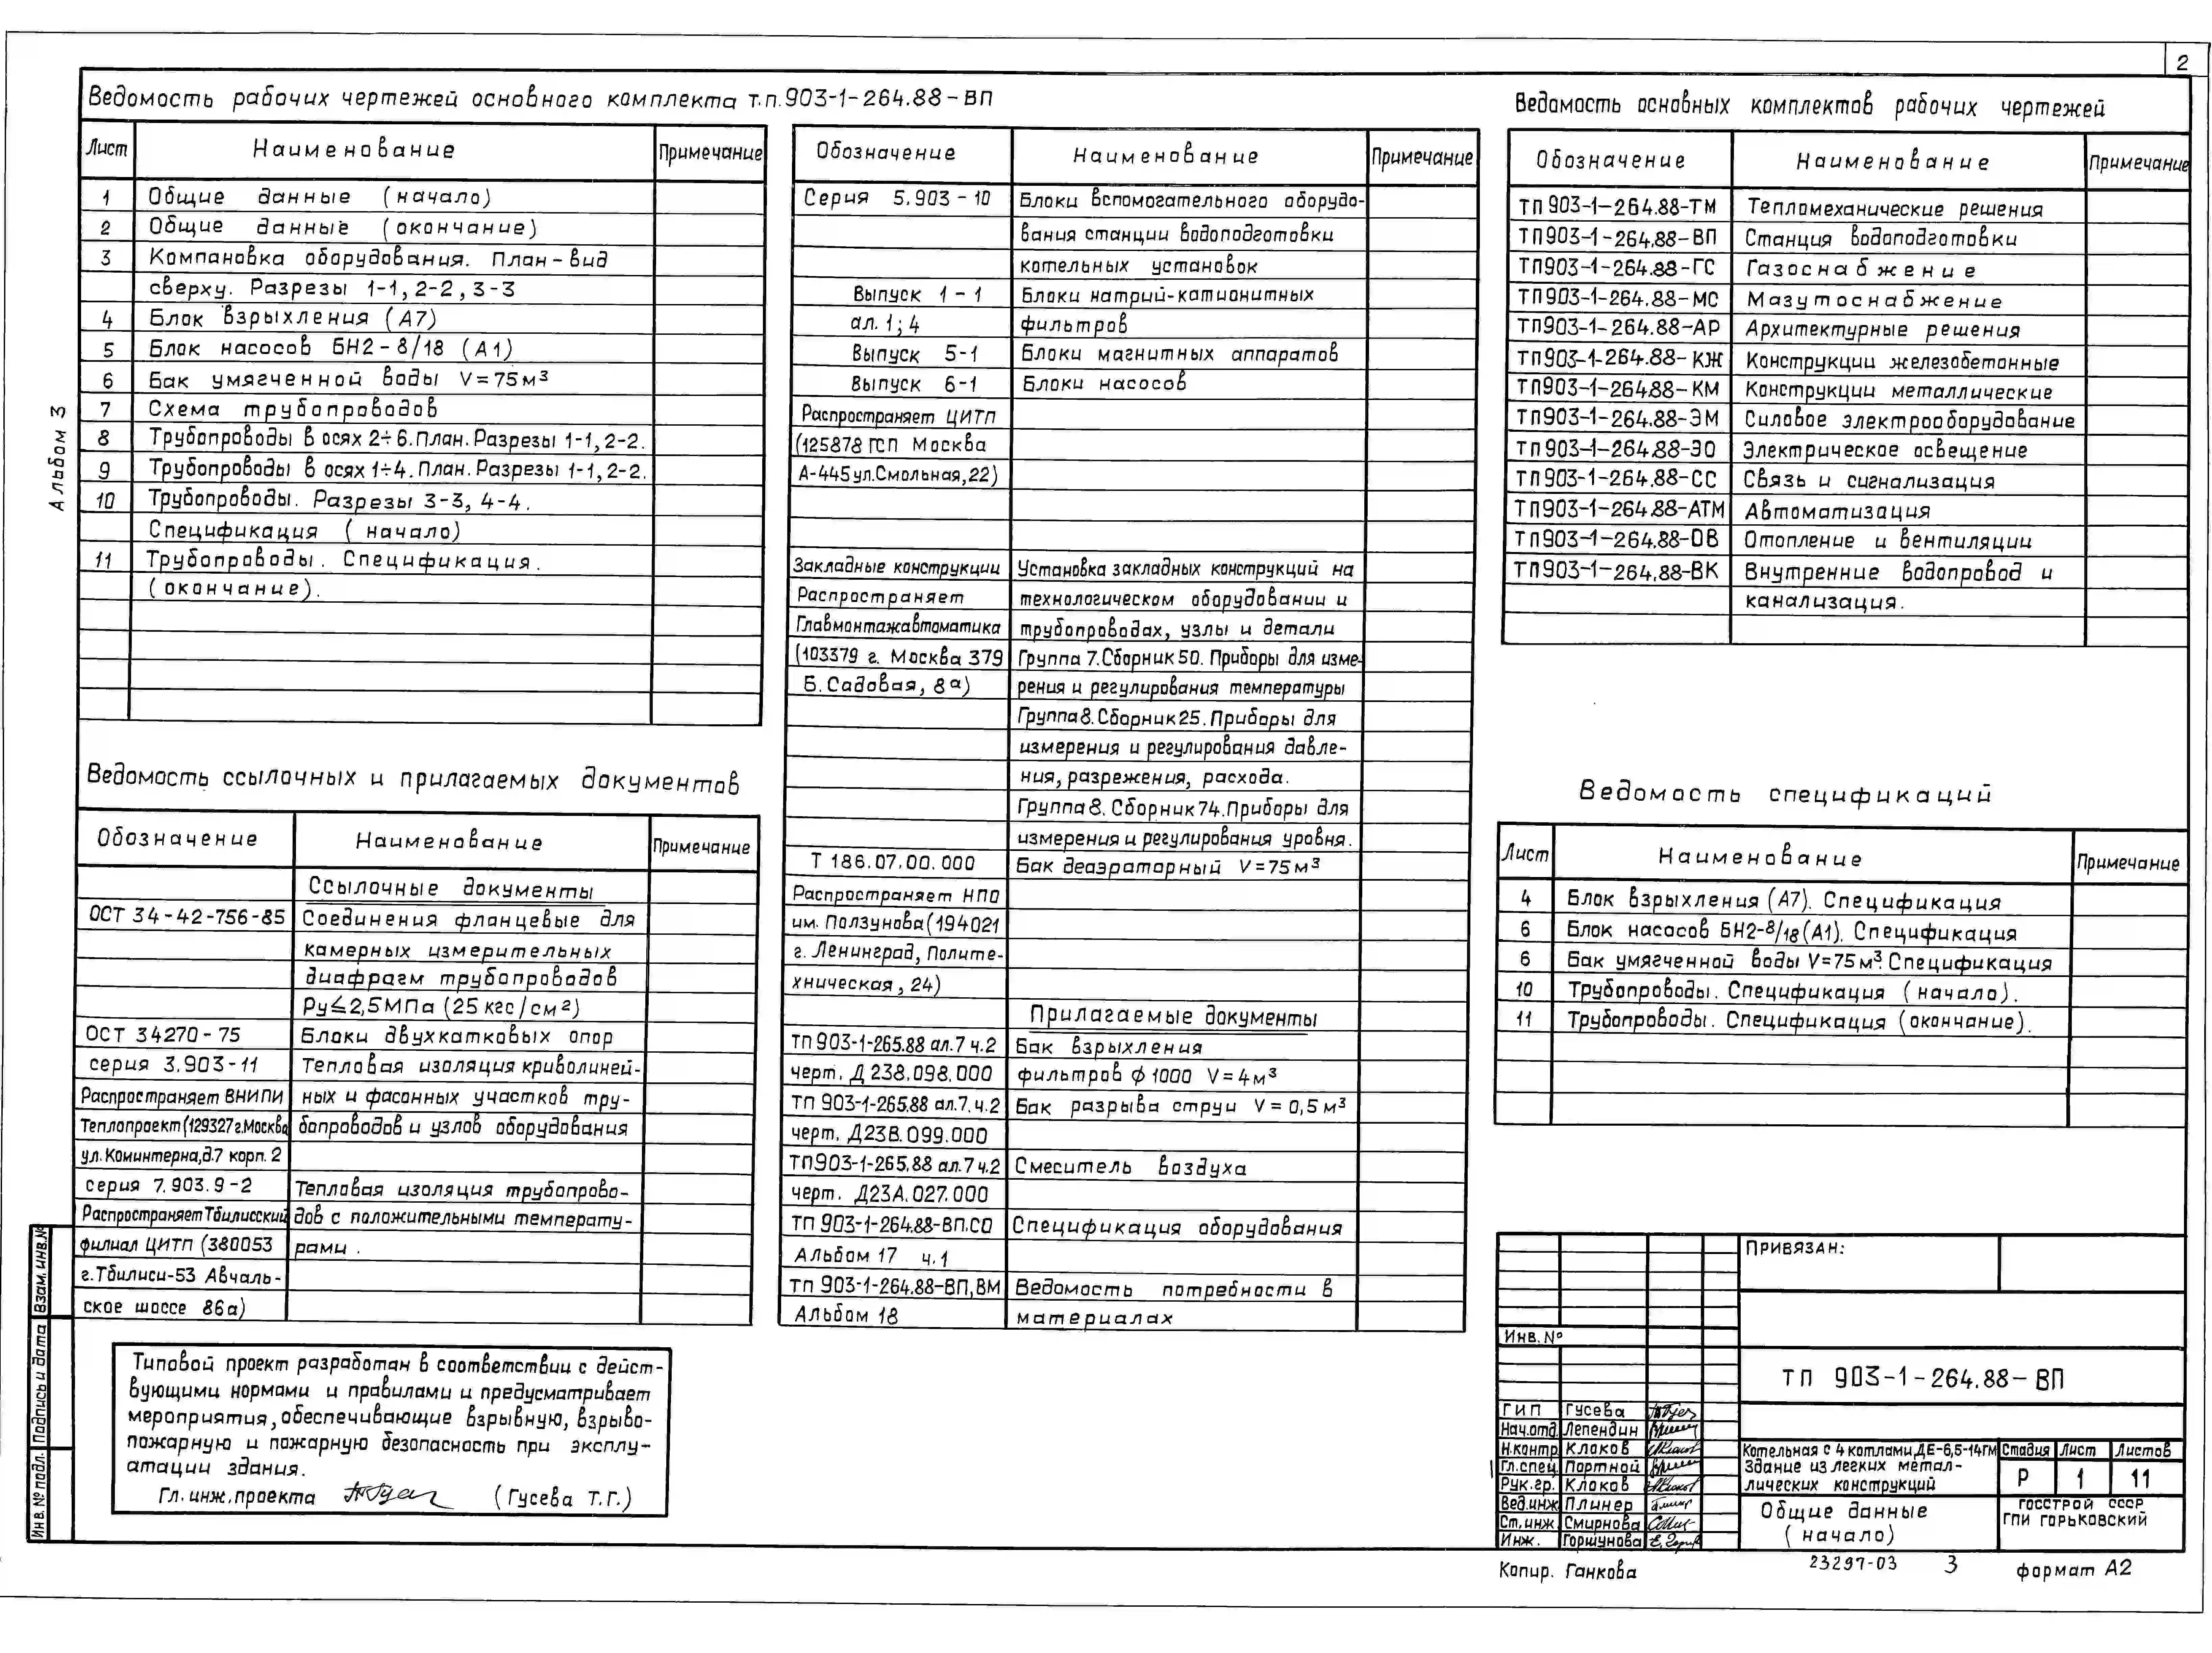 2
Альбом 3
Ведомость рабочих чертежей основного комплекта т.п.903-1-264.88-ВП
Лист Наименование Примечание
1 Общие данные (начало)
2 Общие данные (окончание)
3 Компановка оборудования. План-вид
сверху. Разрезы 1-1, 2-2, 3-3
4 Блок взрыхления (А7)
5 Блок насосов БН2-8/18 (А1)
6 Бак умягченной воды V=75м³
7 Схема трубопроводов
8 Трубопроводы в осях 2÷6. План. Разрезы 1-1, 2-2.
9 Трубопроводы в осях 1÷4. План. Разрезы 1-1, 2-2.
10 Трубопроводы. Разрезы 3-3, 4-4.
Спецификация (начало)
11 Трубопроводы. Спецификация.
(окончание).
Ведомость ссылочных и прилагаемых документов
Обозначение Наименование Примечание
Ссылочные документы
ОСТ 34-42-756-85 Соединения фланцевые для
камерных измерительных
диафрагм трубопроводов
Ру≤2,5МПа (25 кгс/см²)
ОСТ 34270-75 Блоки двухкатковых опор
серия 3.903-11 Тепловая изоляция криволиней-
Распространяет ВНИПИ ных и фасонных участков тру-
Теплопроект (129327 г.Москва бопроводов и узлов оборудования
ул. Коминтерна, д.7 корп. 2
серия 7.903.9-2 Тепловая изоляция трубопрово-
Распространяет Тбилисский дов с положительными температу-
филиал ЦИТП (380053 рами.
г.Тбилиси-53 Авчаль-
ское шоссе 86а)
Типовой проект разработан в соответствии с дейст-
вующими нормами и правилами и предусматривает
мероприятия, обеспечивающие взрывную, взрыво-
пожарную и пожарную безопасность при эксплу-
атации здания.
Гл. инж. проекта (Гусева Т.Г.)
Обозначение Наименование Примечание
Серия 5.903-10 Блоки вспомогательного оборудо-
вания станции водоподготовки
котельных установок
Выпуск 1-1 Блоки натрий-катионитных
ал. 1; 4 фильтров
Выпуск 5-1 Блоки магнитных аппаратов
Выпуск 6-1 Блоки насосов
Распространяет ЦИТП
(125878 ГСП Москва
А-445 ул.Смольная, 22)
Закладные конструкции Установка закладных конструкций на
Распространяет технологическом оборудовании и
Главмонтажавтоматика трубопроводах, узлы и детали
(103379 г. Москва 379 Группа 7. Сборник 50. Приборы для изме-
Б. Садовая, 8а) рения и регулирования температуры
Группа 8. Сборник 25. Приборы для
измерения и регулирования давле-
ния, разрежения, расхода.
Группа 8. Сборник 74. Приборы для
измерения и регулирования уровня.
Т 186.07.00.000 Бак деаэраторный V=75м³
Распространяет НПО
им. Ползунова (194021
г. Ленинград, Полите-
хническая, 24)
Прилагаемые документы
ТП 903-1-265.88 ал.7 ч.2 Бак взрыхления
черт. Д 238.098.000 фильтров ф 1000 V=4м³
ТП 903-1-265.88 ал.7.ч.2 Бак разрыва струи V=0,5м³
черт. Д23В.099.000
ТП903-1-265.88 ал.7ч.2 Смеситель воздуха
черт. Д23А.027.000
ТП 903-1-264.88-ВП.СО Спецификация оборудования
Альбом 17 ч.1
тп 903-1-264.88-ВП,ВМ Ведомость потребности в
Альбом 18 материалах
Ведомость основных комплектов рабочих чертежей
Обозначение Наименование Примечание
ТП 903-1-264.88-ТМ Тепломеханические решения
ТП903-1-264.88-ВП Станция водоподготовки
ТП903-1-264.88-ГС Газоснабжение
ТП903-1-264.88-МС Мазутоснабжение
ТП903-1-264.88-АР Архитектурные решения
ТП903-1-264.88-КЖ Конструкции железобетонные
ТП903-1-264.88-КМ Конструкции металлические
ТП903-1-264.88-ЭМ Силовое электрооборудование
ТП903-1-264.88-ЭО Электрическое освещение
ТП903-1-264.88-СС Связь и сигнализация
ТП903-1-264.88-АТМ Автоматизация
ТП903-1-264.88-ОВ Отопление и вентиляции
ТП903-1-264.88-ВК Внутренние водопровод и
канализация.
Ведомость спецификаций
Лист Наименование Примечание
4 Блок взрыхления (А7). Спецификация
6 Блок насосов БН2-8/18(А1). Спецификация
6 Бак умягченной воды V=75м³. Спецификация
10 Трубопроводы. Спецификация (начало).
11 Трубопроводы. Спецификация (окончание).
Привязан:
Инв. №
ТП 903-1-264.88-ВП
ГИП Гусева
Нач.отд. Лепендин
Н.контр. Клоков
Гл.спец. Портной
Рук.гр. Клоков
Вед.инж. Плинер
Ст.инж. Смирнова
Инж. Горшунова
Котельная с 4 котлами ДЕ-6,5-14ГМ
Здание из легких метал-
лических конструкций
Стадия Лист Листов
Р 1 11
Общие данные
(начало)
ГОССТРОЙ СССР
ГПИ ГОРЬКОВСКИЙ
Копир. Ганкова 23297-03 3 формат А2
Взам. инв.№
Подпись и дата
Инв. № подл.